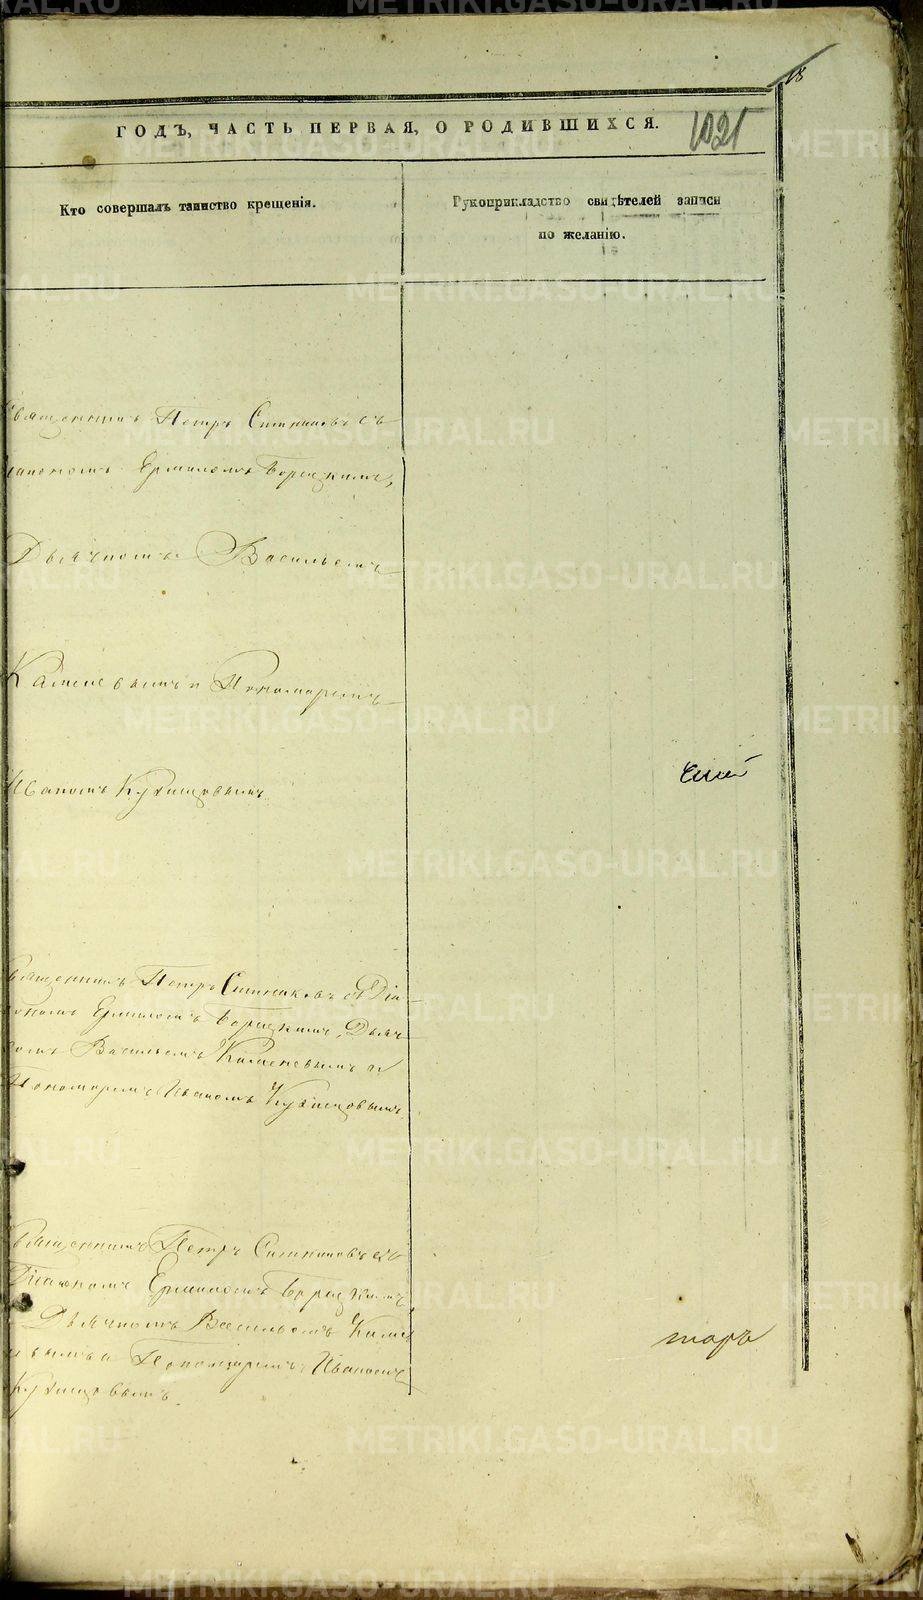 18
ГОДЪ, ЧАСТЬ ПЕРВАЯ, О РОДИВШИХСЯ.
1021
Кто совершалъ таинство крещенія.
Рукоприкладство свидѣтелей записи
по желанію.
Священникъ Петръ Ситниковъ съ
Діакономъ Ермиломъ Борецкимъ,
Дьячкомъ Васильемъ
Каменевымъ и Пономаремъ
Иваномъ Кузнецовымъ
Священникъ Петръ Ситниковъ съ Діа-
кономъ Ермиломъ Борецкимъ, Дьяч-
комъ Васильемъ Каменевымъ и
Пономаремъ Иваномъ Кузнецовымъ.
Священникъ Петръ Ситниковъ съ
Діакономъ Ермиломъ Борецкимъ
Дьячкомъ Васильемъ Камен
евымъ и Пономаремъ Иваномъ
Кузнецовымъ.
METRIKI.GASO-URAL.RU